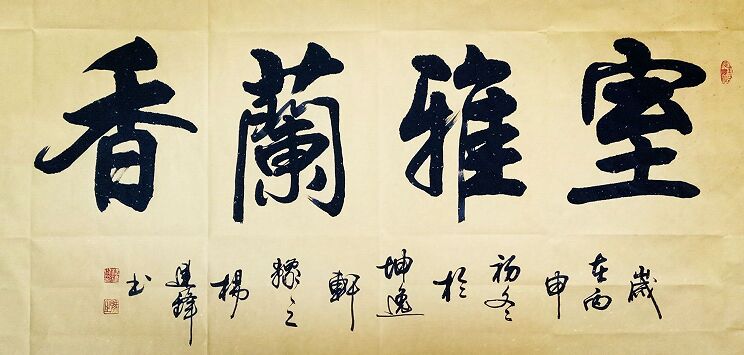 室雅蘭香
歲在丙申初冬於坤逸軒楊建鋒书